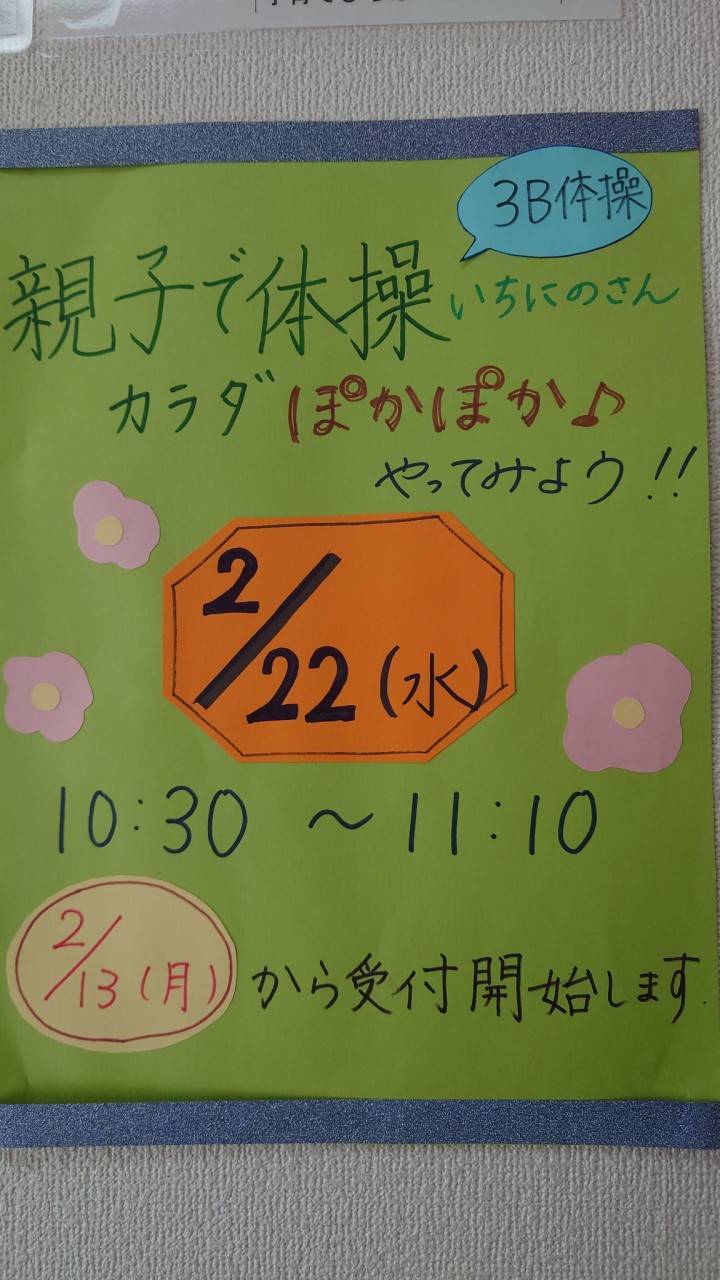 3B体操
親子で体操 いちにのさん
カラダ ぽかぽか♪
やってみよう!!
2/22(水)
10:30 ～ 11:10
2/13(月) から受付開始します